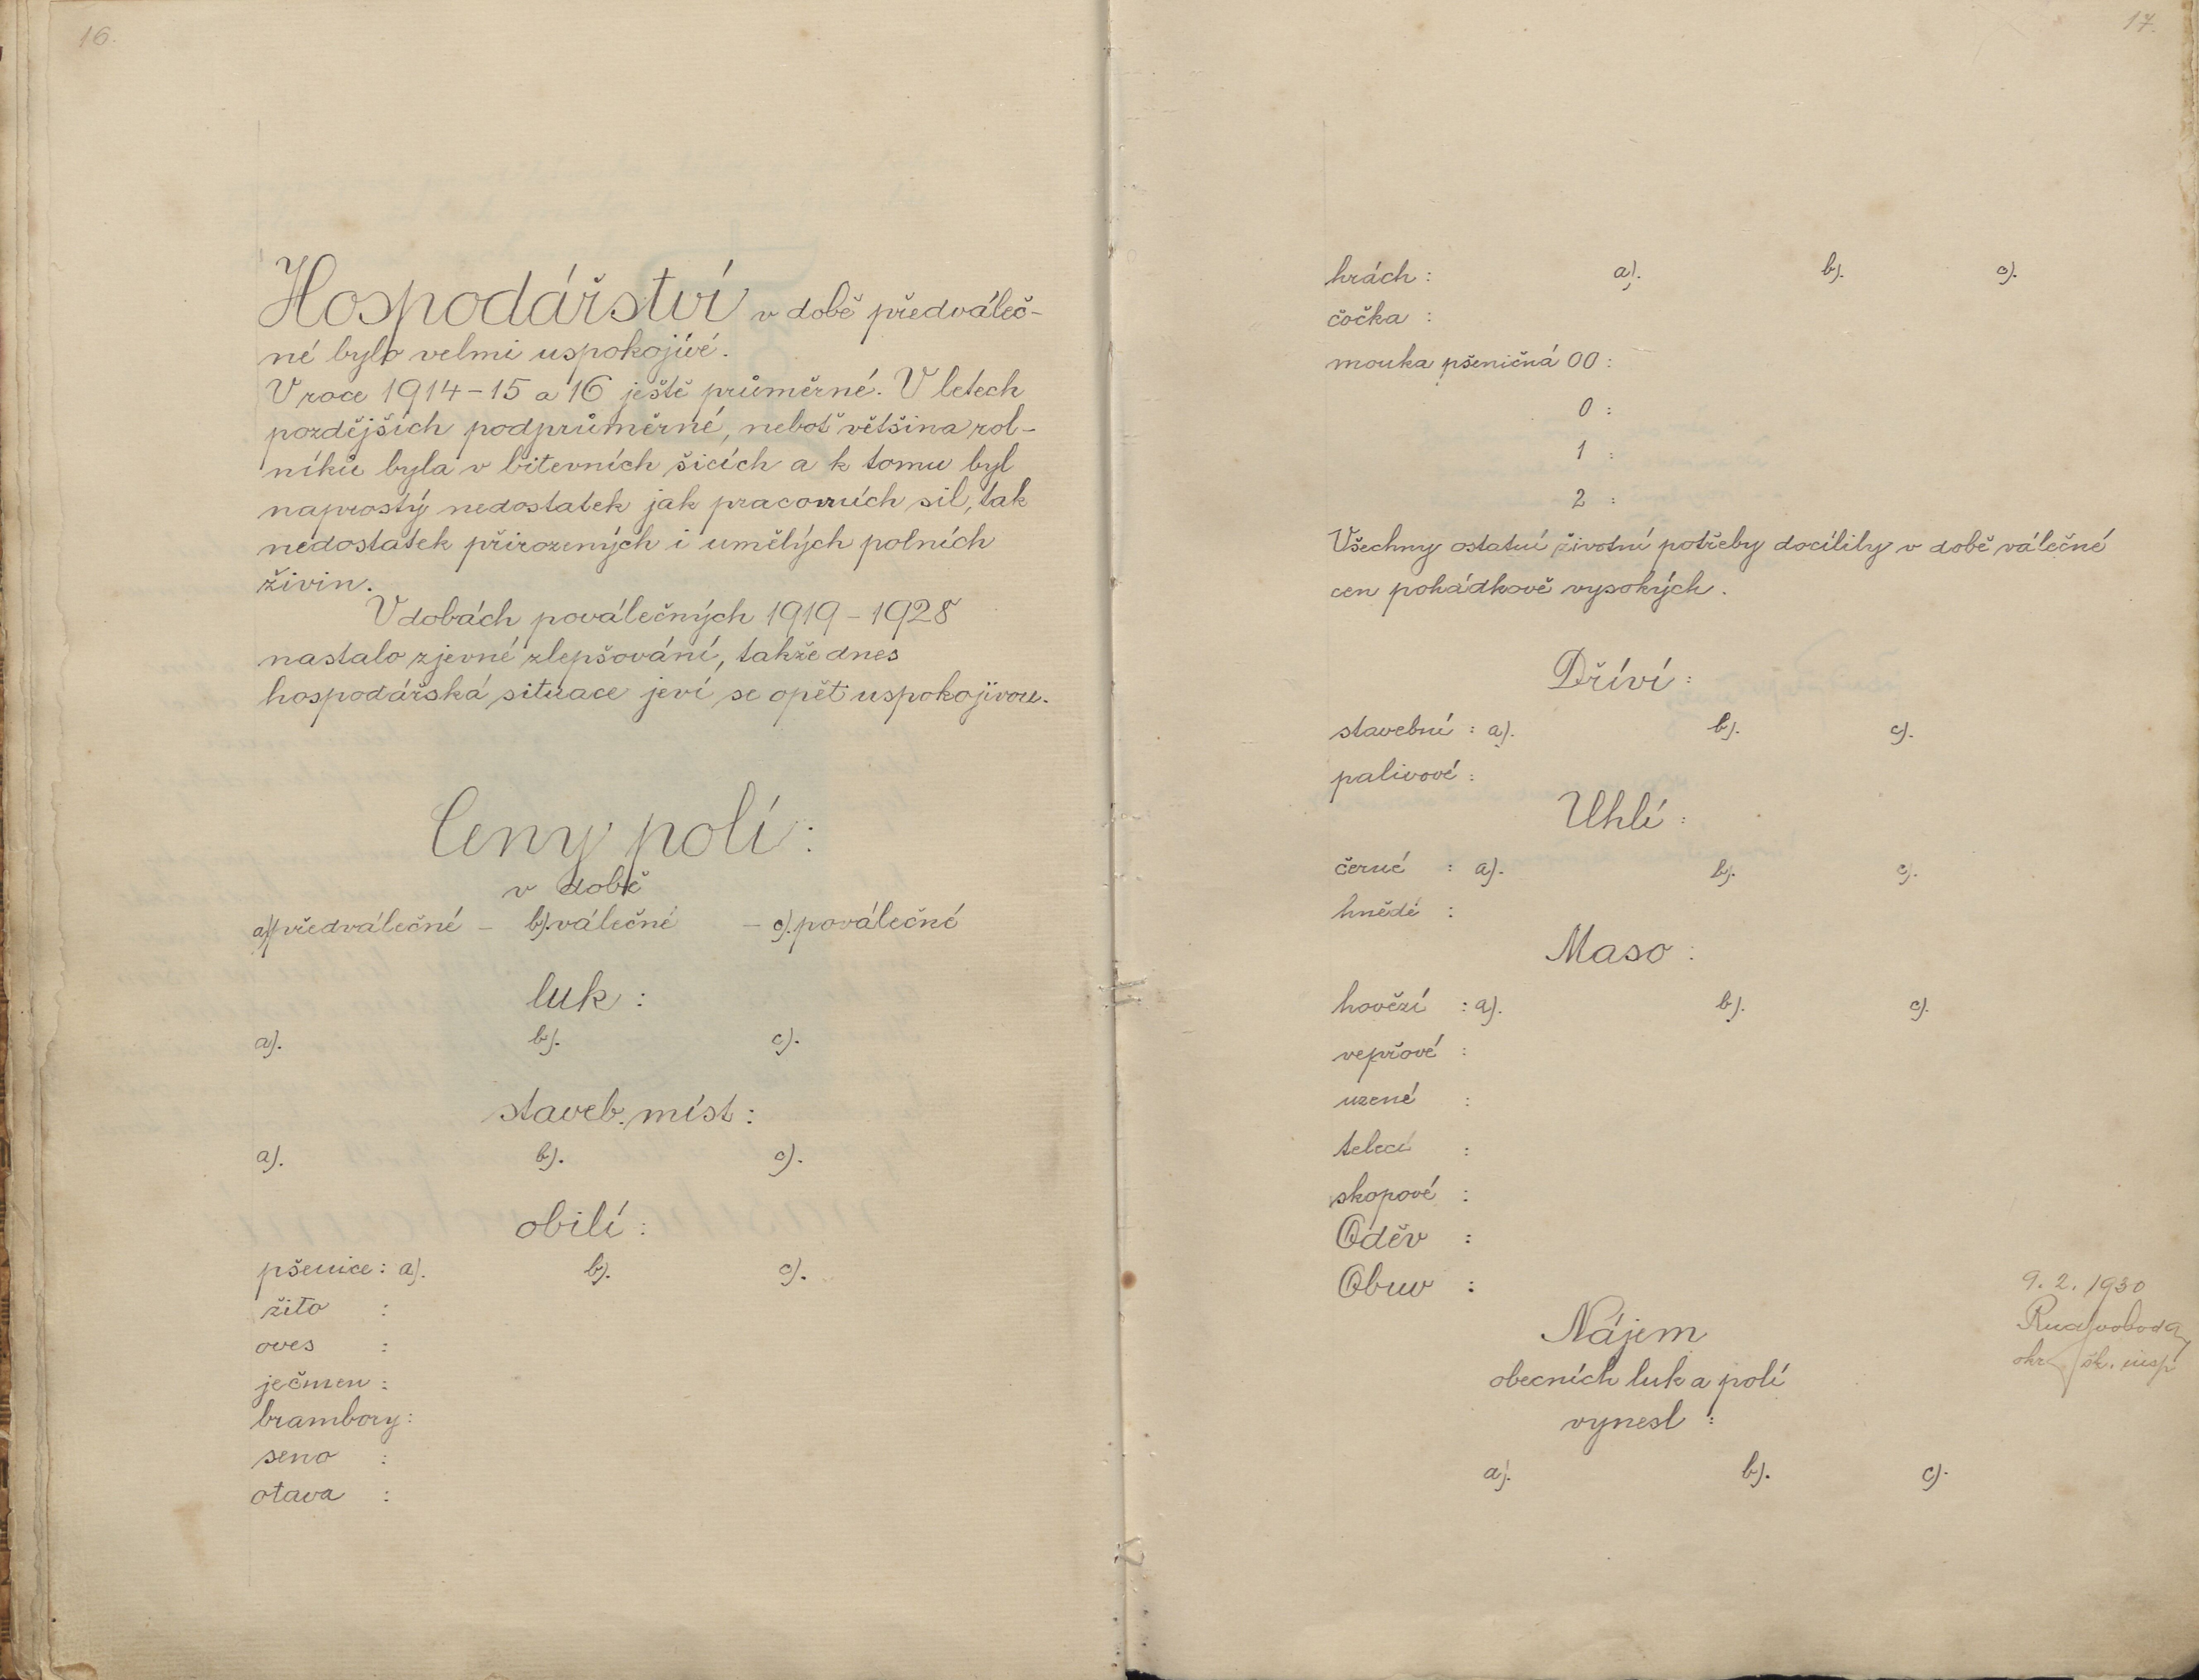 16.
Hospodářství v době předváleč-
né bylo velmi uspokojívé.
V roce 1914-15 a 16 ještě průměrné. V letech
pozdějších podprůměrné, neboť většina rol-
níků byla v bitevních šicích a k tomu byl
naprostý nedostatek jak pracovních sil, tak
nedostatek přirozených i umělých polních
živin.
V dobách poválečných 1919-1928
nastalo zjevné zlepšování, takže dnes
hospodářská situace jeví se opět uspokojívou.
Ceny polí:
v době
a) předválečné - b). válečné - c). poválečné
luk:
a). b). c).
staveb. míst:
a). b). c).
obilí:
pšenice: a). b). c).
žito :
oves :
ječmen :
brambory:
seno :
otava :
17.
hrách : a). b). c).
čočka :
mouka pšeničná 00 :
0 :
1 :
2 :
Všechny ostatní životní potřeby docílily v době válečné
cen pohádkově vysokých.
Dříví:
stavební : a). b). c).
palivové :
Uhlí :
černé : a). b). c).
hnědé :
Maso :
hovězí : a). b). c).
vepřové :
uzené :
telecí :
skopové :
Oděv :
Obuv :
Nájem
obecních luk a polí
vynesl :
a). b). c).
9. 2. 1930
okr. šk. insp